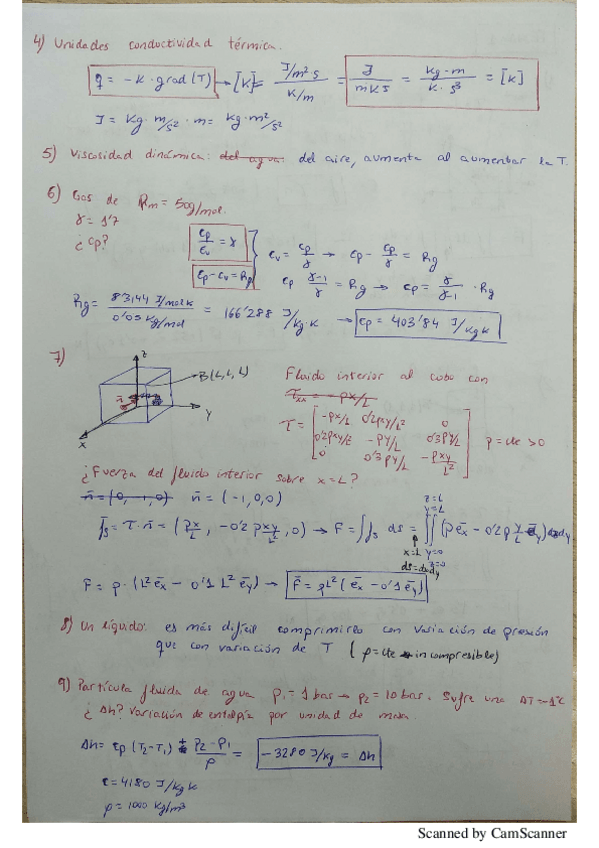 4) Unidades conductividad térmica.
q̄ = -K · grad(T) → [K] = (J/m²·s)/(K/m) = J/(m K s) = (kg·m)/(K·s³) = [K]
J = Kg · m/s² · m = Kg·m²/s²
5) Viscosidad dinámica: del agua: del aire, aumenta al aumentar la T.
6) Gas de Rm = 50g/mol.
γ = 1'7
¿Cp?
cp/cv = γ
cp - cv = Rg
cv = cp/γ → cp - cp/γ = Rg
cp (γ-1)/γ = Rg → cp = γ/(γ-1) · Rg
Rg = (8'3144 J/mol K)/(0'05 Kg/mol) = 166'288 J/Kg·K → cp = 403'84 J/Kg K
7)
z
B(L,L,L)
n̄
y
x
Fluido interior al cubo con
τxx = -px/L
τ = [ -px/L 0'2pxy/L² 0
0'2pxy/L² -py/L 0'3py/L
0 0'3py/L -pxy/L² ] p = cte > 0
¿Fuerza del fluido interior sobre x = L?
n̄ = (0, -1, 0) n̄ = (-1,0,0)
f̄s = τ · n̄ = (px/L, -0'2 pxy/L², 0) → F = ∫∫ f̄s ds = ∫∫ (p ēx - 0'2p y/L ēy) dxdy
z=L
y=L
x=L y=0
z=0
ds=dxdy
F̄ = p · (L² ēx - 0'1 L² ēy) → F̄ = pL² (ēx - 0'1 ēy)
8) Un líquido: es más difícil comprimirlo con variación de presión
que con variación de T (ρ = cte incompresible)
9) Partícula fluida de agua p₁ = 1 bar → p₂ = 10 bar. Sufre una ΔT = -1°C
¿Δh? Variación de entalpía por unidad de masa.
Δh = cp (T₂-T₁) + (p₂-p₁)/ρ = -3280 J/kg = Δh
c = 4180 J/kg K
ρ = 1000 Kg/m³
Scanned by CamScanner